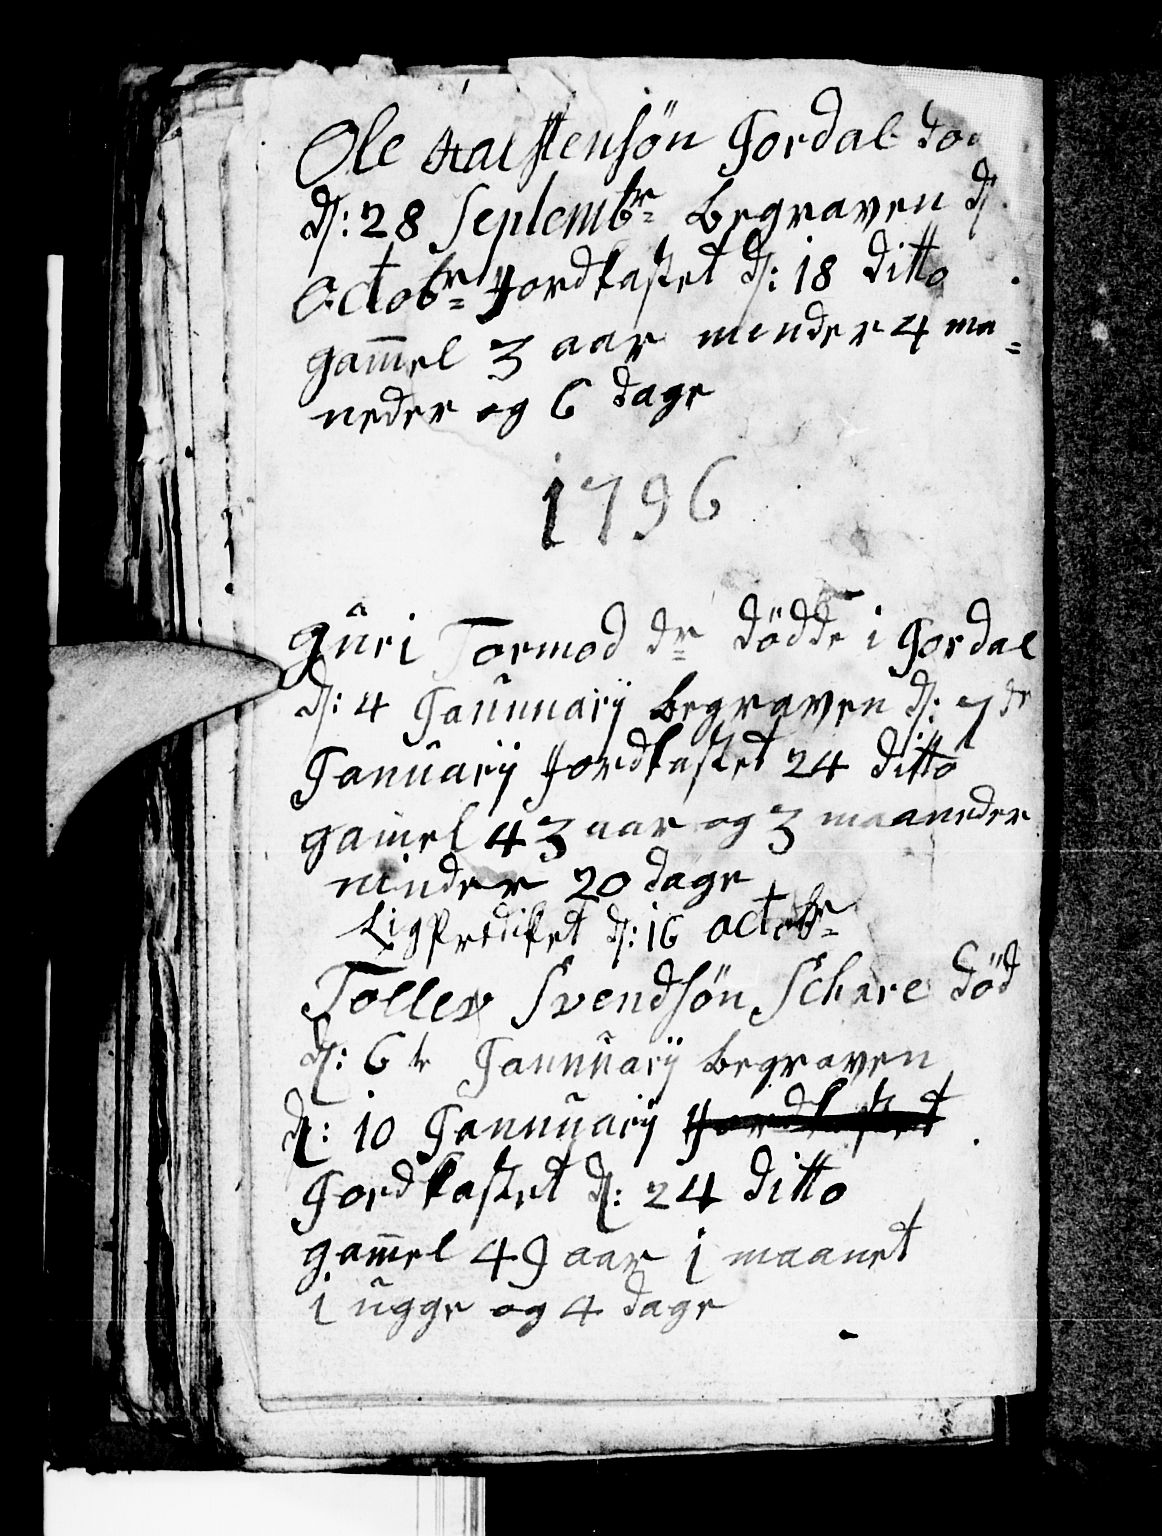 Ole Halstensön Jordal död
d: 28 Septembr begraven d
Octobr Jordkastet d: 18 ditto
gam̄el 3 aar minder 4 ma=
neder og 6 dage
1796
gûri Tormod dr dödde i Jordal
d: 4 Jaunuarÿ begraven d: 7de
Januarÿ Jordkastet 24 ditto
gam̄el 43 aar og 3 maaneder
minder 20 dage
Ligprediket d: 16 octobr
Tollev Svendsön Schare död
d: 6te Jannuarÿ begraven
d: 10 Jannuarÿ Jordkastet
Jordkastet d: 24 ditto
gam̄el 49 aar i maanet
i ugge og 4 dage